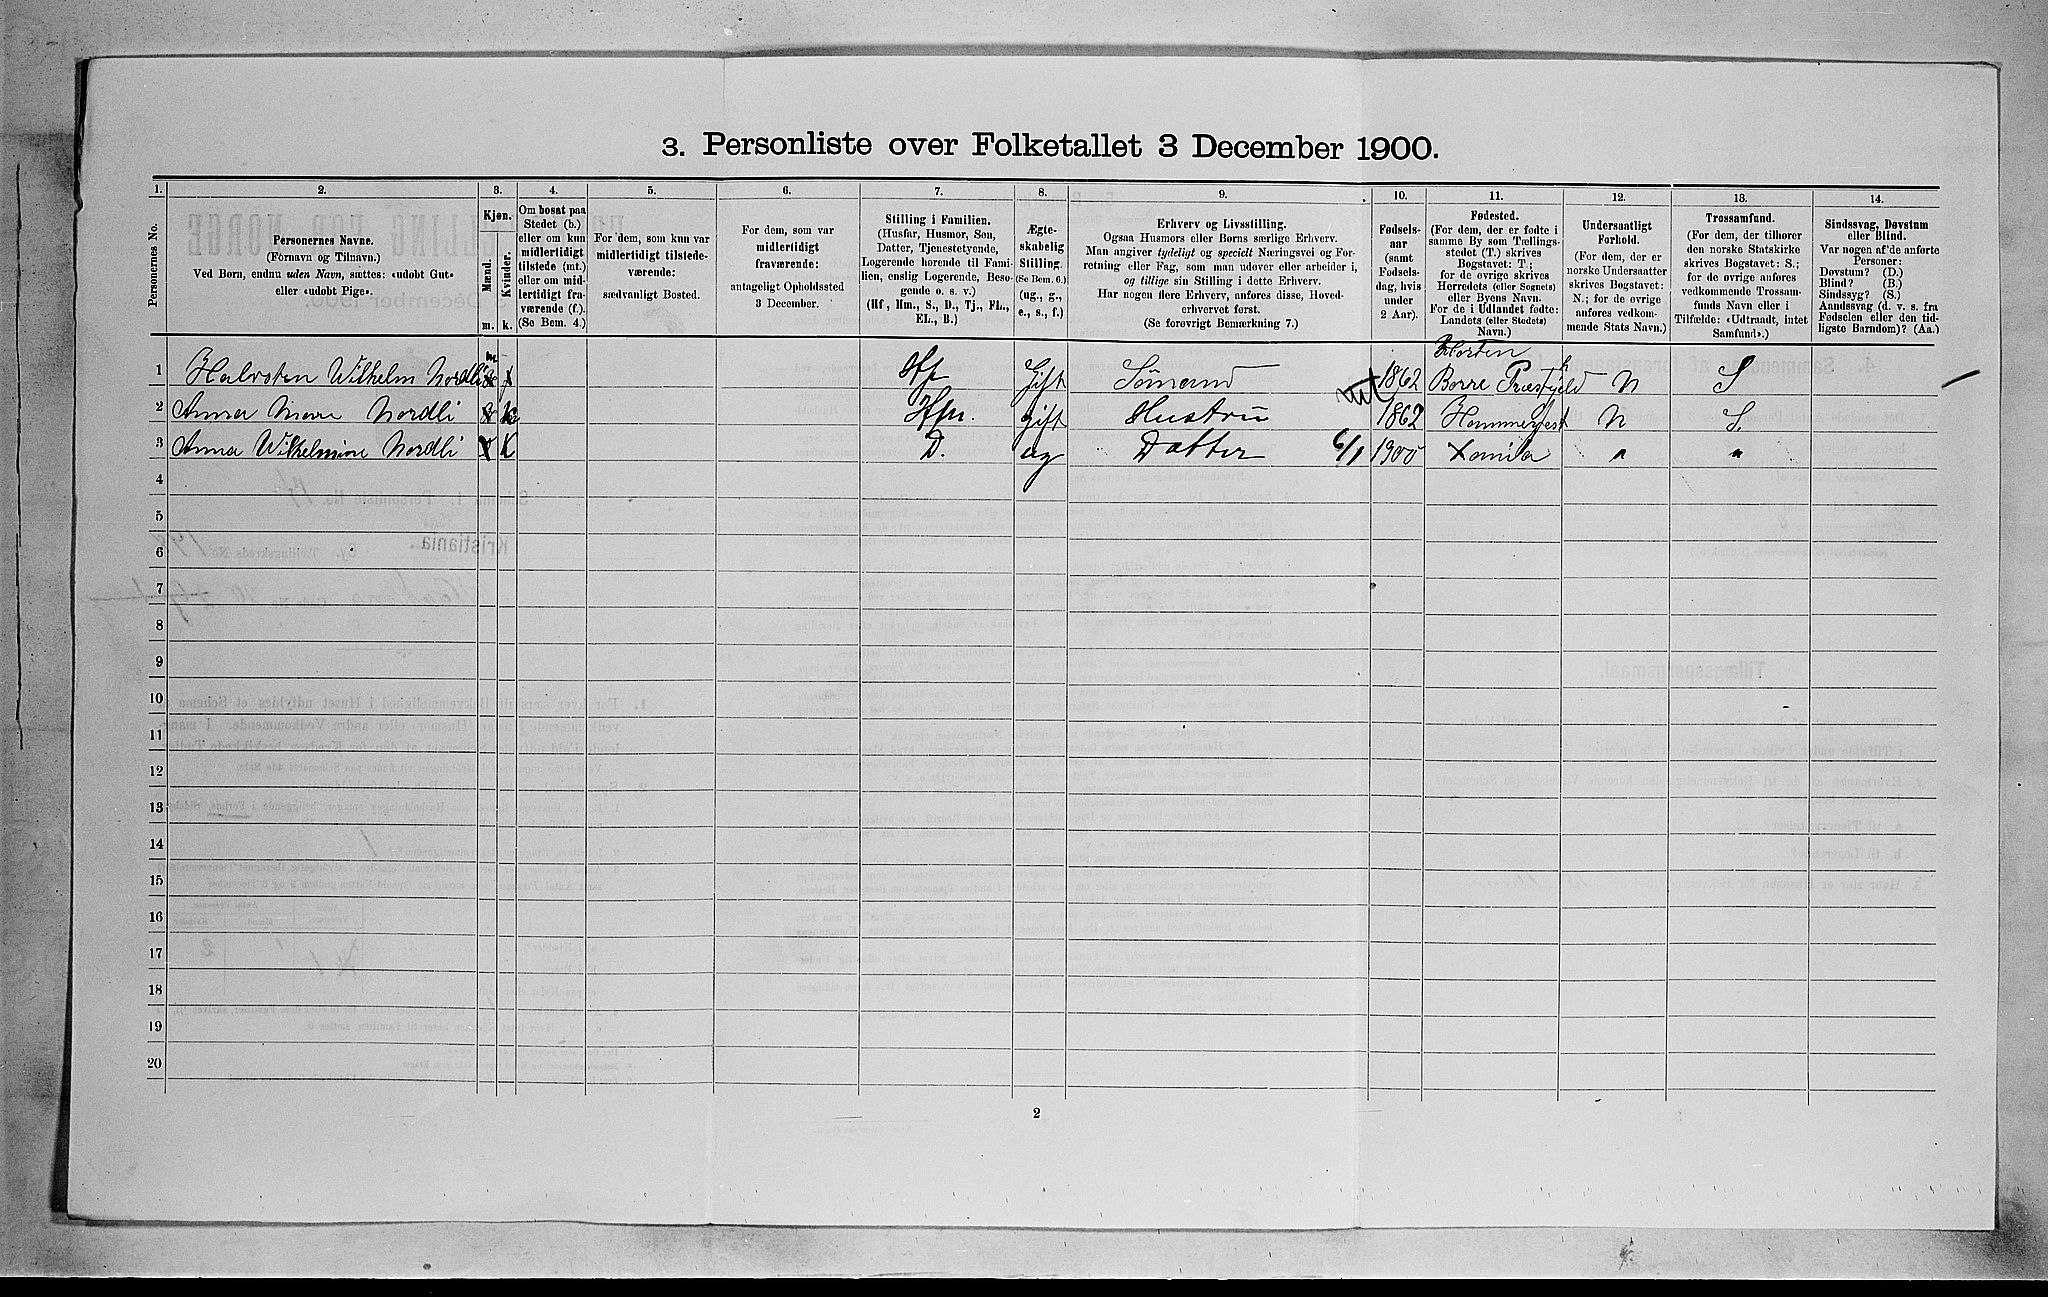 3. Personliste over Folketallet 3 December 1900.
1. 2. 3. 4. 5. 6. 7. 8. 9. 10. 11. 12. 13. 14.
Personernes No.
Personernes Navne.
(Fornavn og Tilnavn.)
Ved Børn, endnu uden Navn, sættes: «udøbt Gut»
eller «udøbt Pige».
Kjøn.
Mænd.
Kvinder.
m. k.
Om bosat paa
Stedet (b.)
eller om kun
midlertidigt
tilstede (mt.)
eller om mid-
lertidigt fra-
værende (f.).
(Se Bem. 4.)
For dem, som kun var
midlertidigt tilstede-
værende:
sædvanligt Bosted.
For dem, som var
midlertidigt
fraværende:
antageligt Opholdssted
3 December.
Stilling i Familien.
(Husfar, Husmor, Søn,
Datter, Tjenestetyende,
Logerende hørende til Fami-
lien, enslig Logerende, Besø-
gende o. s. v.)
(Hf, Hm., S., D., Tj., FL.,
EL., B.)
Ægte-
skabelig
Stilling.
(Se Bem. 6.)
(ug., g.,
e., s., f.)
Erhverv og Livsstilling.
Ogsaa Husmors eller Børns særlige Erhverv.
Man angiver tydeligt og specielt Næringsvei og For-
retning eller Fag, som man udøver eller arbeider i,
og tillige sin Stilling i dette Erhverv.
Har nogen flere Erhverv, anføres disse, Hoved-
erhvervet først.
(Se forøvrigt Bemærkning 7.)
Fødsels-
aar
(samt
Fødsels-
dag, hvis
under
2 Aar).
Fødested.
(For dem, der er fødte i
samme By som Tællings-
stedet (T.) skrives
Bogstavet: T.;
for de øvrige skrives
Herredets (eller Sognets)
eller Byens Navn.
For de i Udlandet fødte:
Landets (eller Stedets)
Navn.)
Undersaatligt
Forhold.
(For dem, der er
norske Undersaatter
skrives Bogstavet:
N.; for de øvrige
anføres vedkom-
mende Stats Navn.)
Trossamfund.
(For dem, der tilhører
den norske Statskirke
skrives Bogstavet: S.;
for de øvrige anføres
vedkommende Trossam-
funds Navn eller i
Tilfælde: «Udtraadt, intet
Samfund».)
Sindssvag, Døvstum
eller Blind.
Var nogen af de anførte
Personer:
Døvstum? (D.)
Blind? (B.)
Sindssyg? (S.)
Aandssvag (d. v. s. fra
Fødselen eller den tid-
ligste Barndom)? (Aa.)
Horten
1 Halvsten Wilhelm Nordli m x Hf Gift Sømand 1862 Borre Præstgjeld N S
2 Anna Marie Nordli k Hm. gift Hustru 1862 Hammerfest N S.
3 Anna Wilhelmine Nordli x k D. ug Datter 6/1 1900 " "
4
5
6
7
8
9
10
11
12
13
14
15
16
17
18
19
20
2